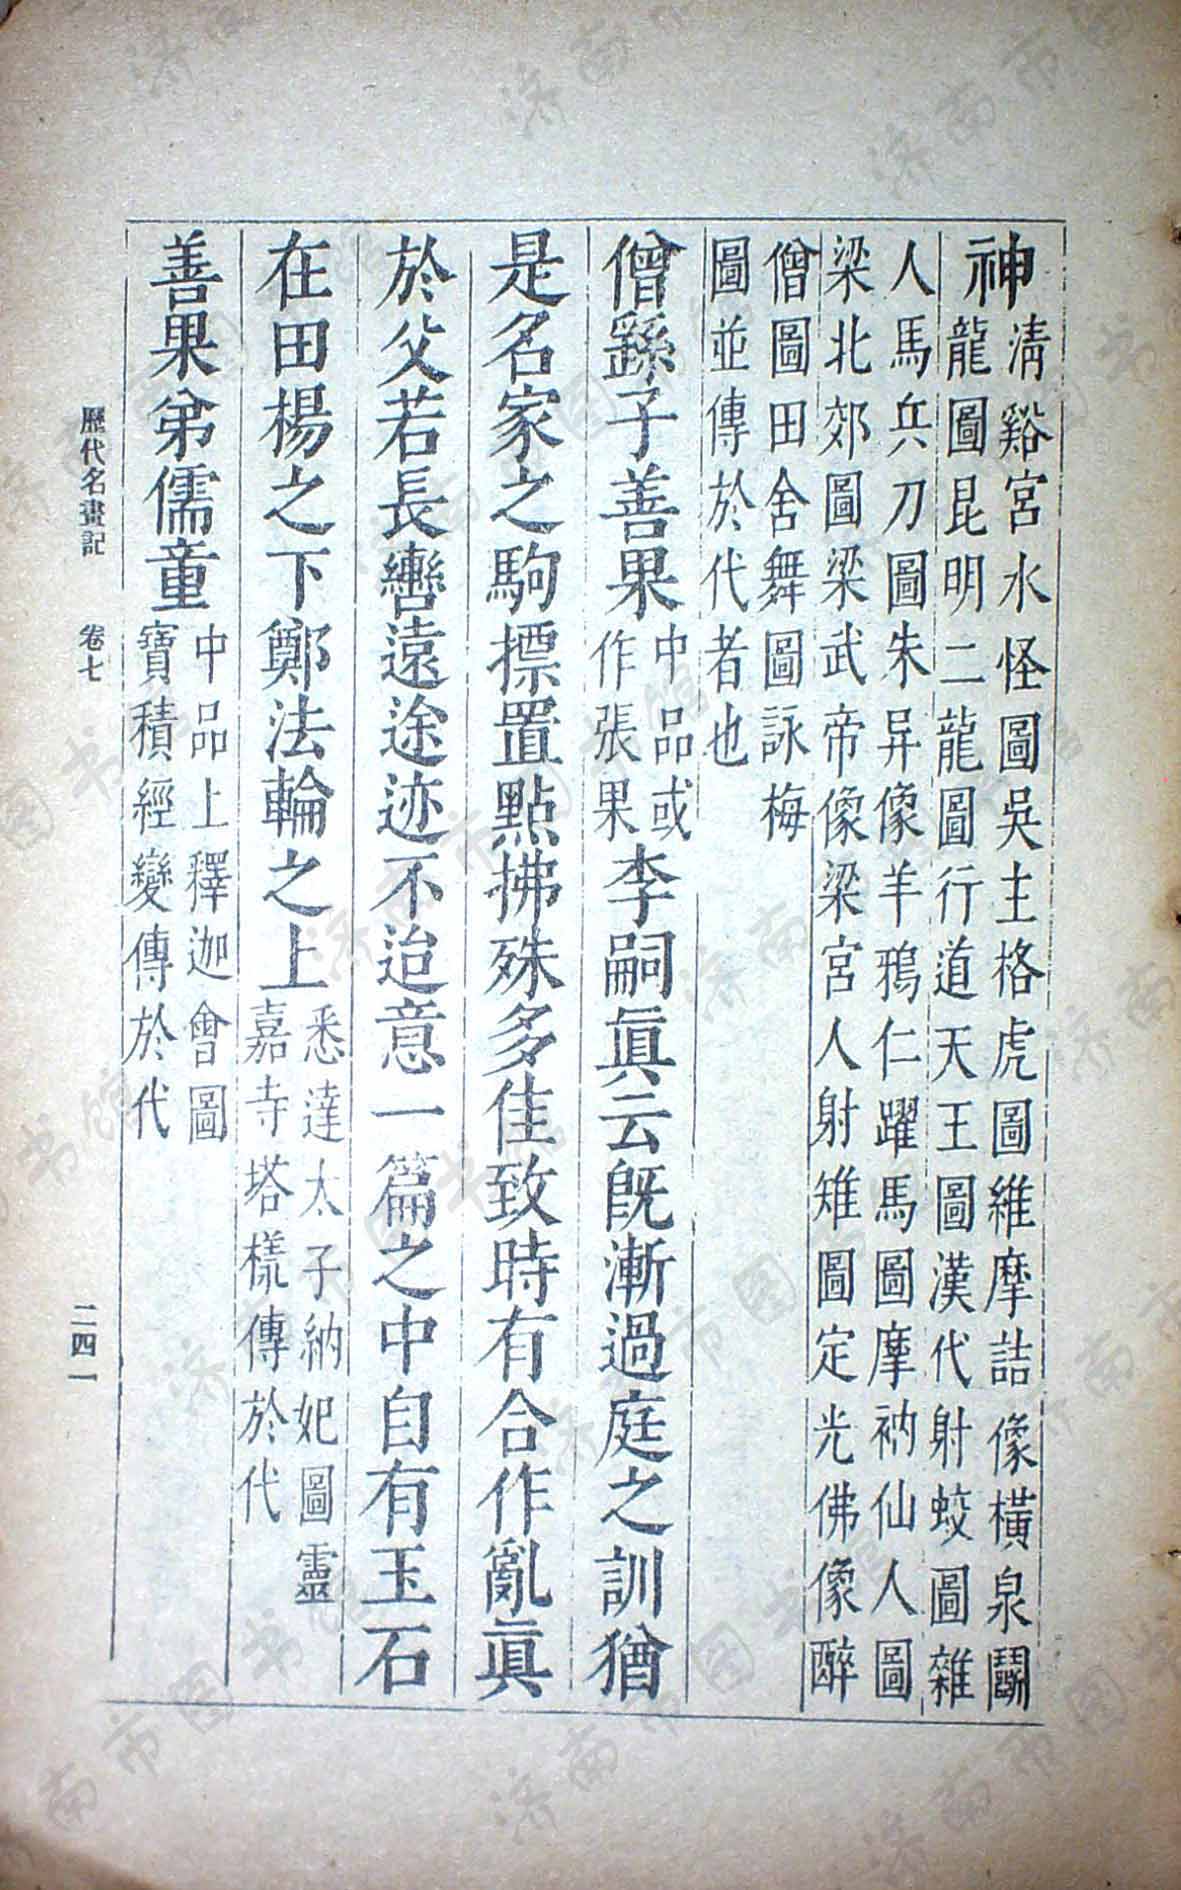 神
清谿宮水怪圖吳主格虎圖維摩詰像橫泉鬭
龍圖昆明二龍圖行道天王圖漢代射蛟圖雜
人馬兵刀圖朱异像羊鴉仁躍馬圖摩衲仙人圖
梁北郊圖梁武帝像梁宮人射雉圖定光佛像醉
僧圖田舍舞圖詠梅
圖並傳於代者也
僧繇子善果
中品或
作張果
李嗣眞云旣漸過庭之訓猶
是名家之駒摽置點拂殊多佳致時有合作亂眞
於父若長轡遠途迹不迨意一篇之中自有玉石
在田楊之下鄭法輪之上
悉達太子納妃圖靈
嘉寺塔樣傳於代
善果弟儒童
中品上釋迦會圖
寶積經變傳於代
歷代名畫記 卷七 二四一
济南市图书馆